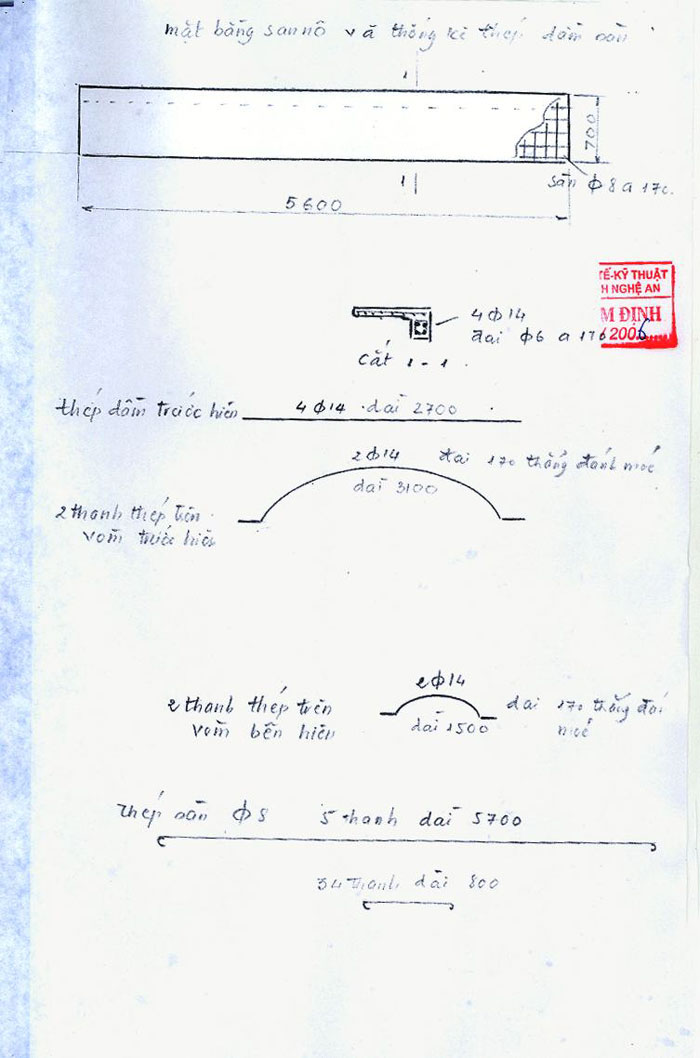 mặt bằng sannô và thống kê thép dầm sàn
1
700
1
sàn ϕ 8 a 170.
5600
TẾ-KỸ THUẬT
H NGHỆ AN
M ĐỊNH
2006
4ϕ14
đai ϕ6 a 170
cắt 1-1.
thép dầm trước hiên 4ϕ14 dài 2700
2ϕ14 đai 170 thẳng đánh móc
dài 3100
2 thanh thép trên
vòm trước hiên
2ϕ14
2 thanh thép trên
vòm bên hiên
dài 1500
đai 170 thẳng
móc
thép sàn ϕ8 5 thanh dài 5700
34 thanh dài 800